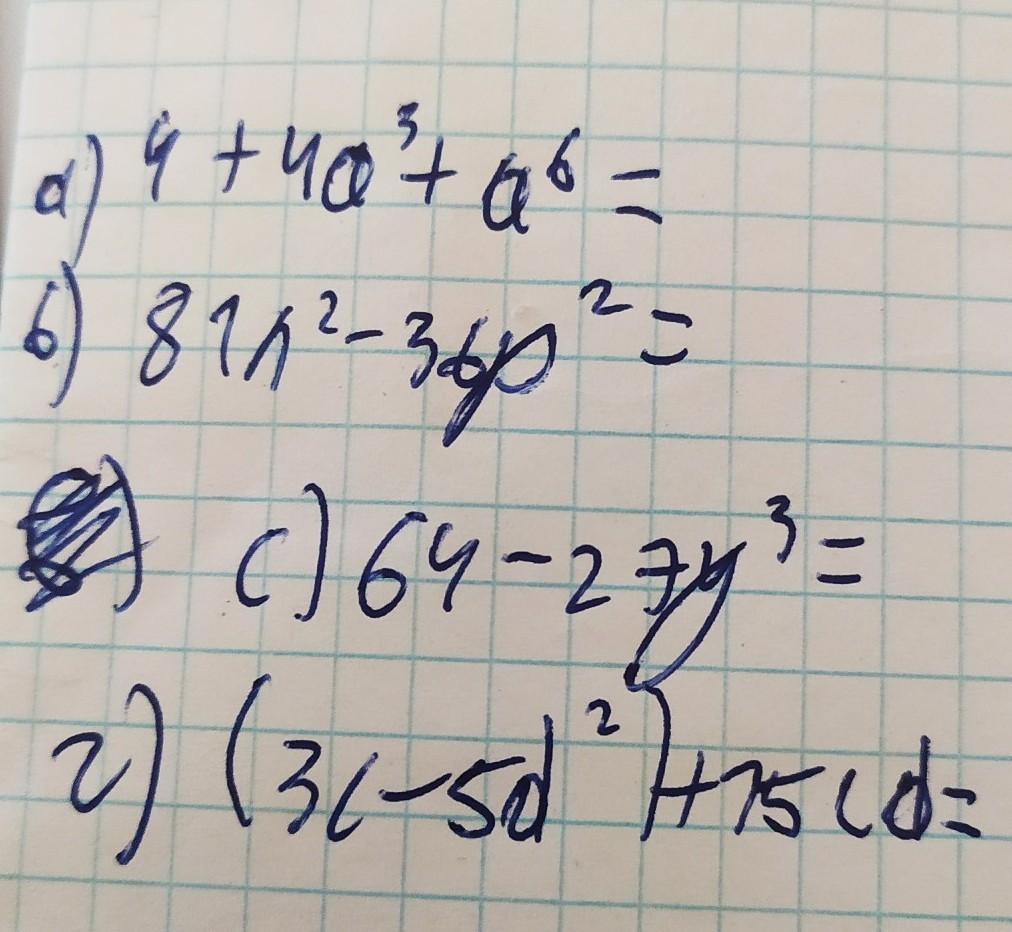 а) 4 + 4a³ + a⁶ =
б) 81n² - 36p² =
c) 64 - 27y³ =
г) (3c - 5d²) + 15cd =